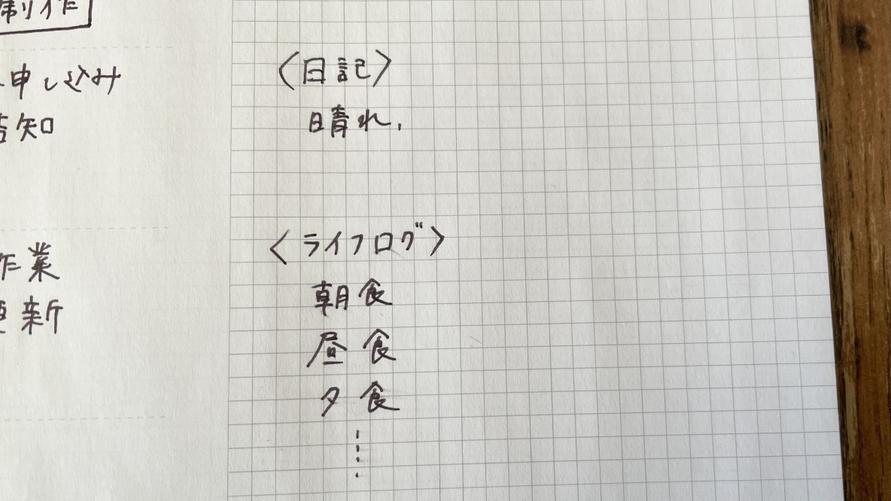 制作
申し込み
告知
作業
更新
〈日記〉
晴れ.
〈ライフログ〉
朝食
昼食
夕食
⋮